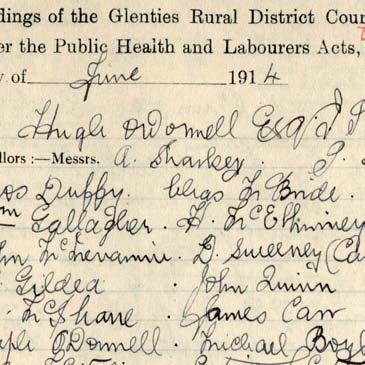 dings of the Glenties Rural District Cou
er the Public Health and Labourers Acts,
y of June 1914
Hugh O'Donnell Esq J P
llors :—Messrs. A. Sharkey. J.
as Duffy. Chas McBride.
m Gallagher. H. McElhinney
hn McNevamin. D. Sweeney (Ca
Gildea. John Quinn
McShane. James Carr
eph O'Donnell. Michael Boyl